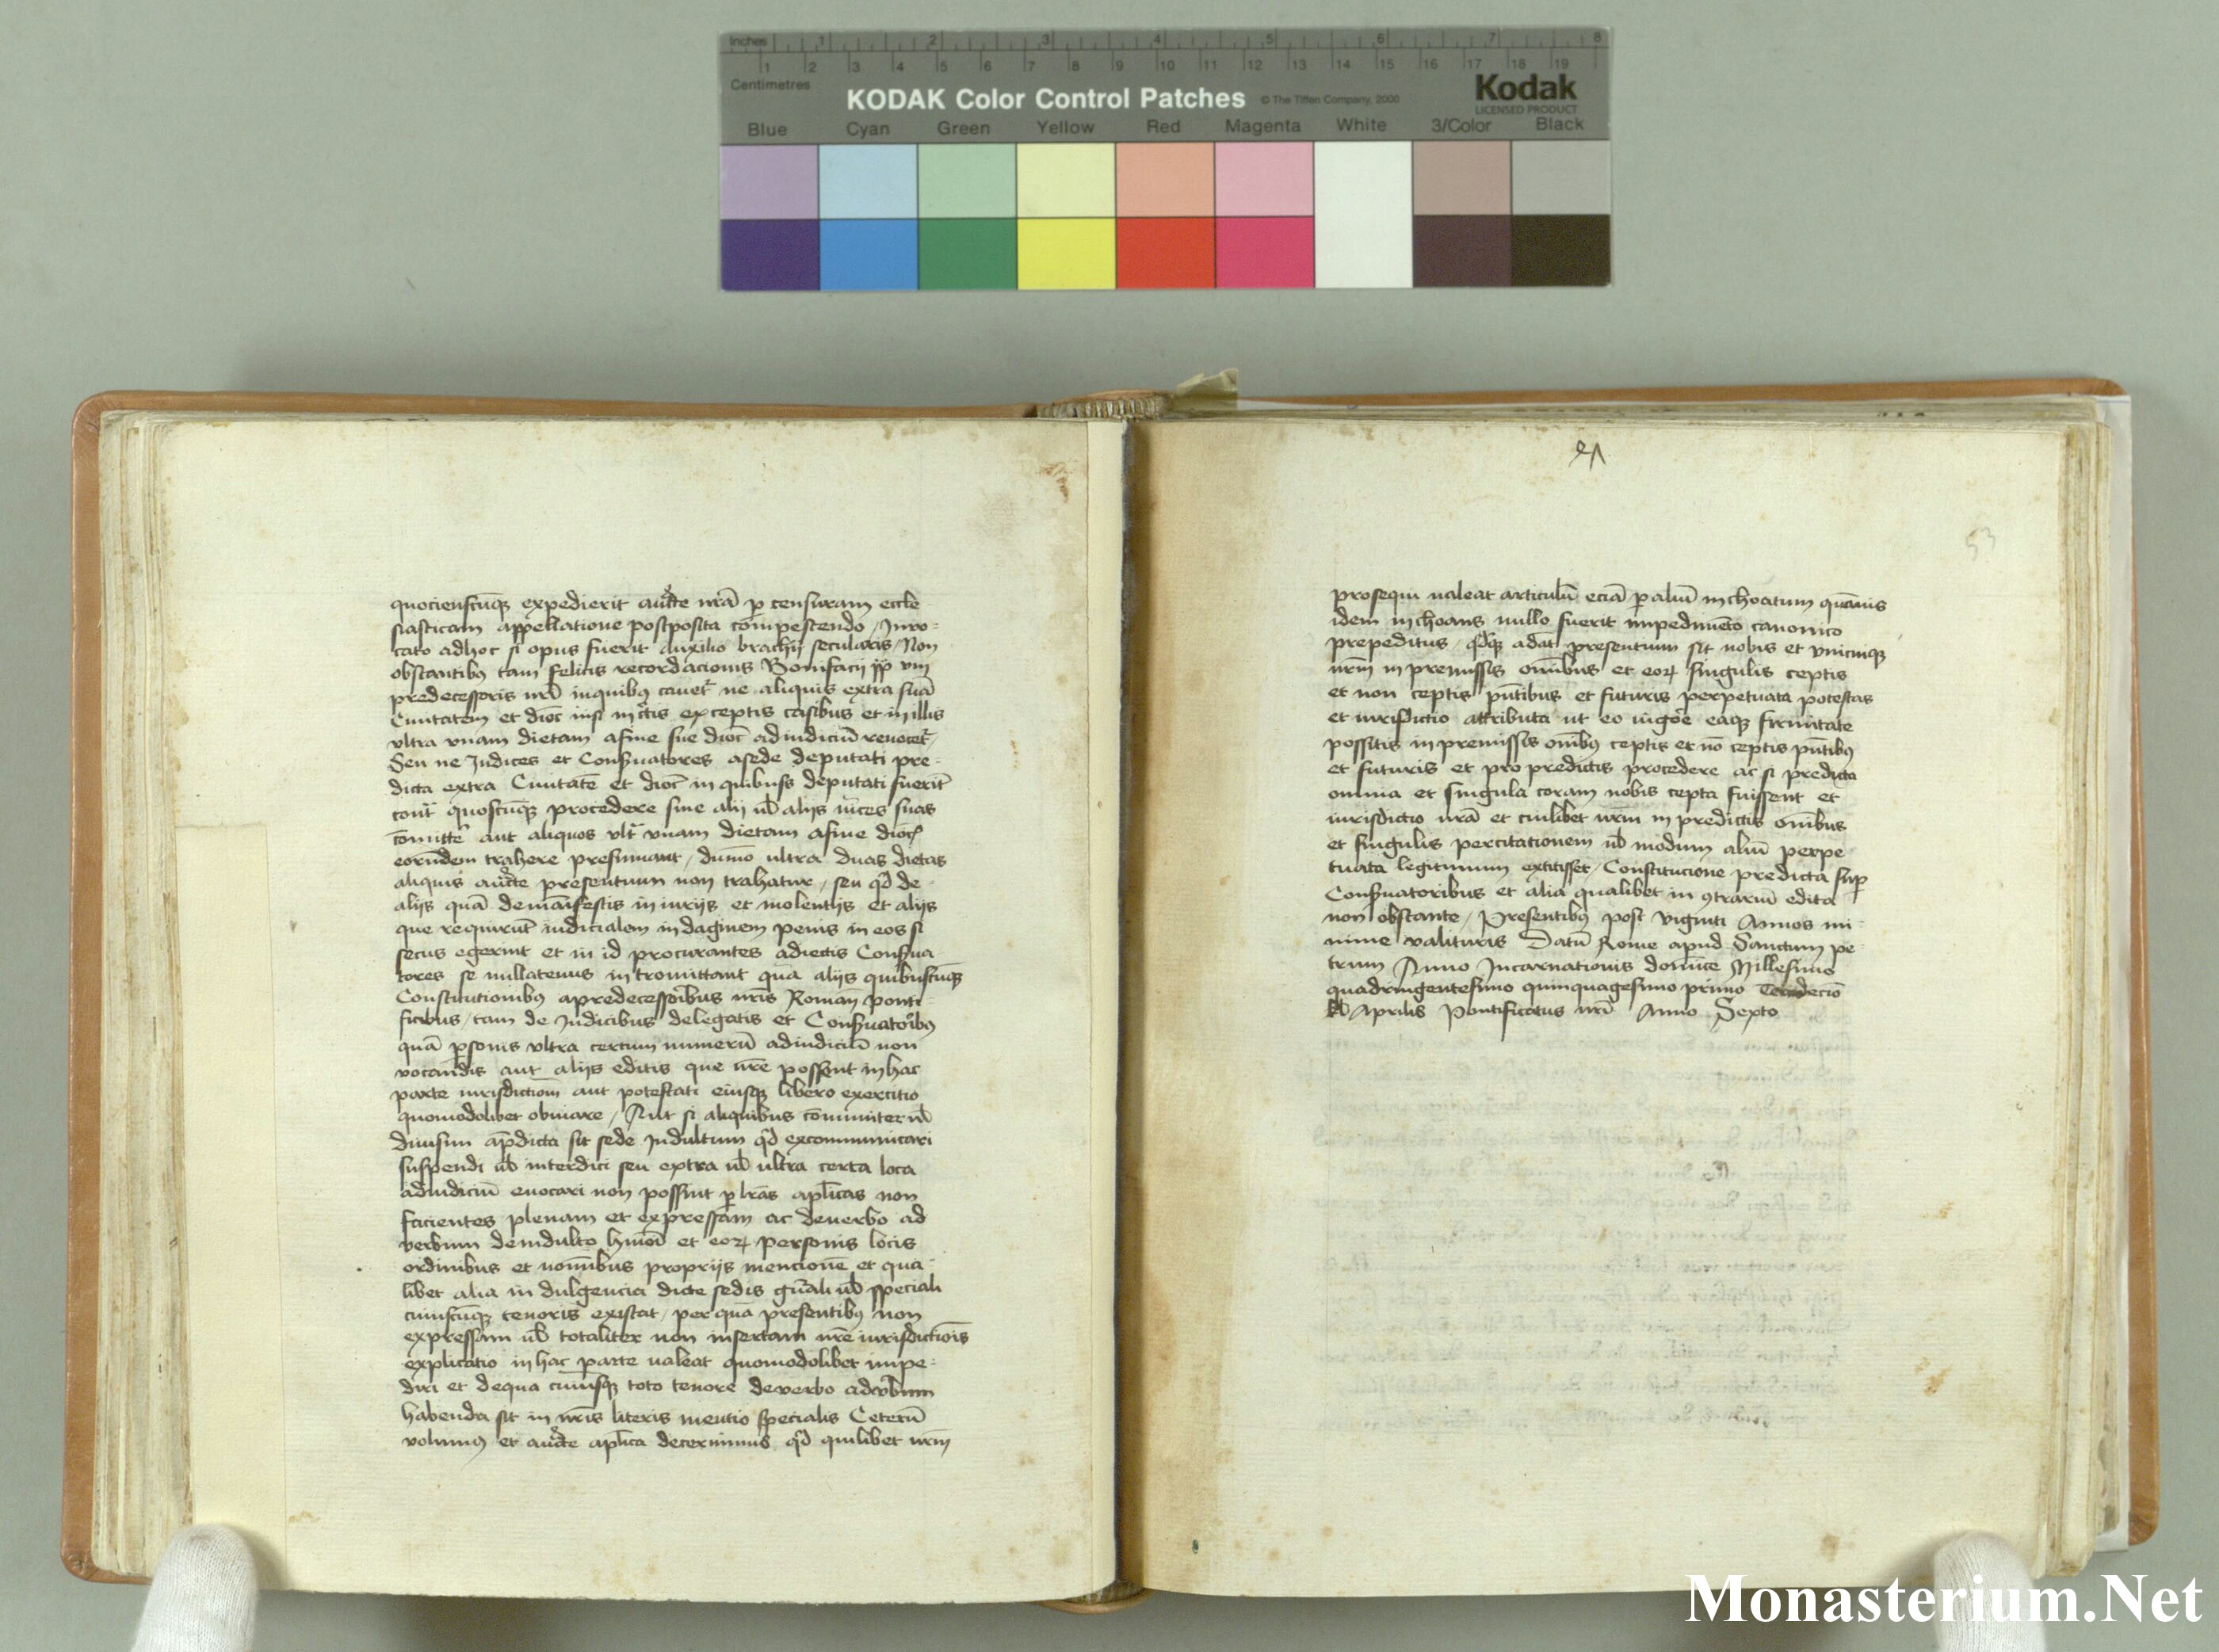 Inches 1 2 3 4 5 6 7 8
1 2 3 4 5 6 7 8 9 10 11 12 13 14 15 16 17 18 19
Centimetres
KODAK Color Control Patches © The Tiffen Company, 2000 Kodak
LICENSED PRODUCT
Blue Cyan Green Yellow Red Magenta White 3/Color Black
quocienscūqȝ expedierit auctte nrā p censuram eccle
siasticam appellatione postposita compescendo / Invo-
cato adhoc si opus fuerit auxilio brachij secularis / Non
obstantibꝰ tam felicis recordacionis Bonifacij pp viij
predecessoris nrī inquibꝰ cavet᷑ ne aliquis extra suā
Civitatem et dioc̄ nisi in c̄tis exceptis casibus et in illis
vltra vnam dietam afine sue dioc̄ adiudiciū revocet᷑ /
Seu ne Judices et Conservatores asede deputati pre-
dicta extra Civitatē et dioc̄ in quibuss deputati fuerīt
cont̄ quoscūqȝ procedere sine alij ul̄ alijs vīces suas
cōmittē aut aliquos vlt̄ vnam dietam afine dioc̄
eorūdem trahere presumant / dūmō ultra duas dietas
aliquis auc̄te presentium non trahatur / seu qd̄ de
alijs quā demānifestis in iurijs et violentijs et alijs
que requirūt iudicialem indaginem penis in eos si
secus egerint et in id procurantes adiectis Conserva
tores se nullatenus intromittant quā alijs quibuscūqȝ
Constitutionibꝰ apredecessoībus nrīs Romaīn ponti-
ficibus / tam de Judicibus delegatis et Conservatoībꝰ
quā psonis vltra certum numerū adiudiciū non
vocandis aut alijs editis que nrē possent inhac
parte iurisdictioni aut potestati eiusqȝ libero exercitio
quomodolibet obviare / Aut si aliquibus cōmuniter ul̄
divisim apdicta sit sede Jndultum qd̄ excommunicari
suspendi ul̄ interdici seu extra ul̄ ultra certa loca
adiudiciū evocari non possint p lrās aplīcas non
facientes plenam et expressam ac deverbo ad
verbum deindulto hmōi et eorꝝ personis locis
ordinibus et nomībus proprijs mencionē et qua-
libet alia indulgencia dicte sedis gnāli ul̄ speciali
cuiuscūqȝ tenoris existat / per quā presentibꝰ non
expressam ul̄ totaliter non insertam nrē iurisdictiōis
explicatio inhac parte valeat quomodolibet impe-
diri et dequa cuiusqȝ toto tenore deverbo advb̄um
habenda sit in nrīs literis mentio specialis Ceterū
volumꝰ et auc̄te aplīca decernimus qd̄ quilibet vrm̄
53
prosequi valeat articulū eciā p aliū inchoatum quāvis
idem inchoans nullo fuerit impedimēto canonico
prepeditus / qd̄qȝ adat̄ presentium sit vobis et vnicuiqȝ
vrm̄ in premissis om̄ibus et eorꝝ singulis ceptis
et non ceptis pn̄tibus et futuris perpetuata potestas
et iurisdictio attributa ut eo vigoē eaqȝ firmitate
possitis in premissis om̄ibꝰ ceptis et nō ceptis pn̄tibꝰ
et futuris et pro predictis procedere ac si predicta
omnia et singula coram vobis cepta fuissent et
iurisdictio vrā et cuilibet vrm̄ in predictis om̄ibus
et singulis percitationem ul̄ modum aliū perpe
tuata legitimum extitisset / Constitucione predicta sup
Conservatoribus et alia qualibet in ꝯtrariū edita
non obstante / Presentibꝰ post viginti Annos mi-
nime valituris Datū Rome apud Sanctum pe-
trum Anno Jncarnationis dominīce Millesimo
quadringentesimo quinquagesimo primo Terdeciō
kl̄ Aprilis Pontificatus nrī Anno Sexto
Monasterium.Net